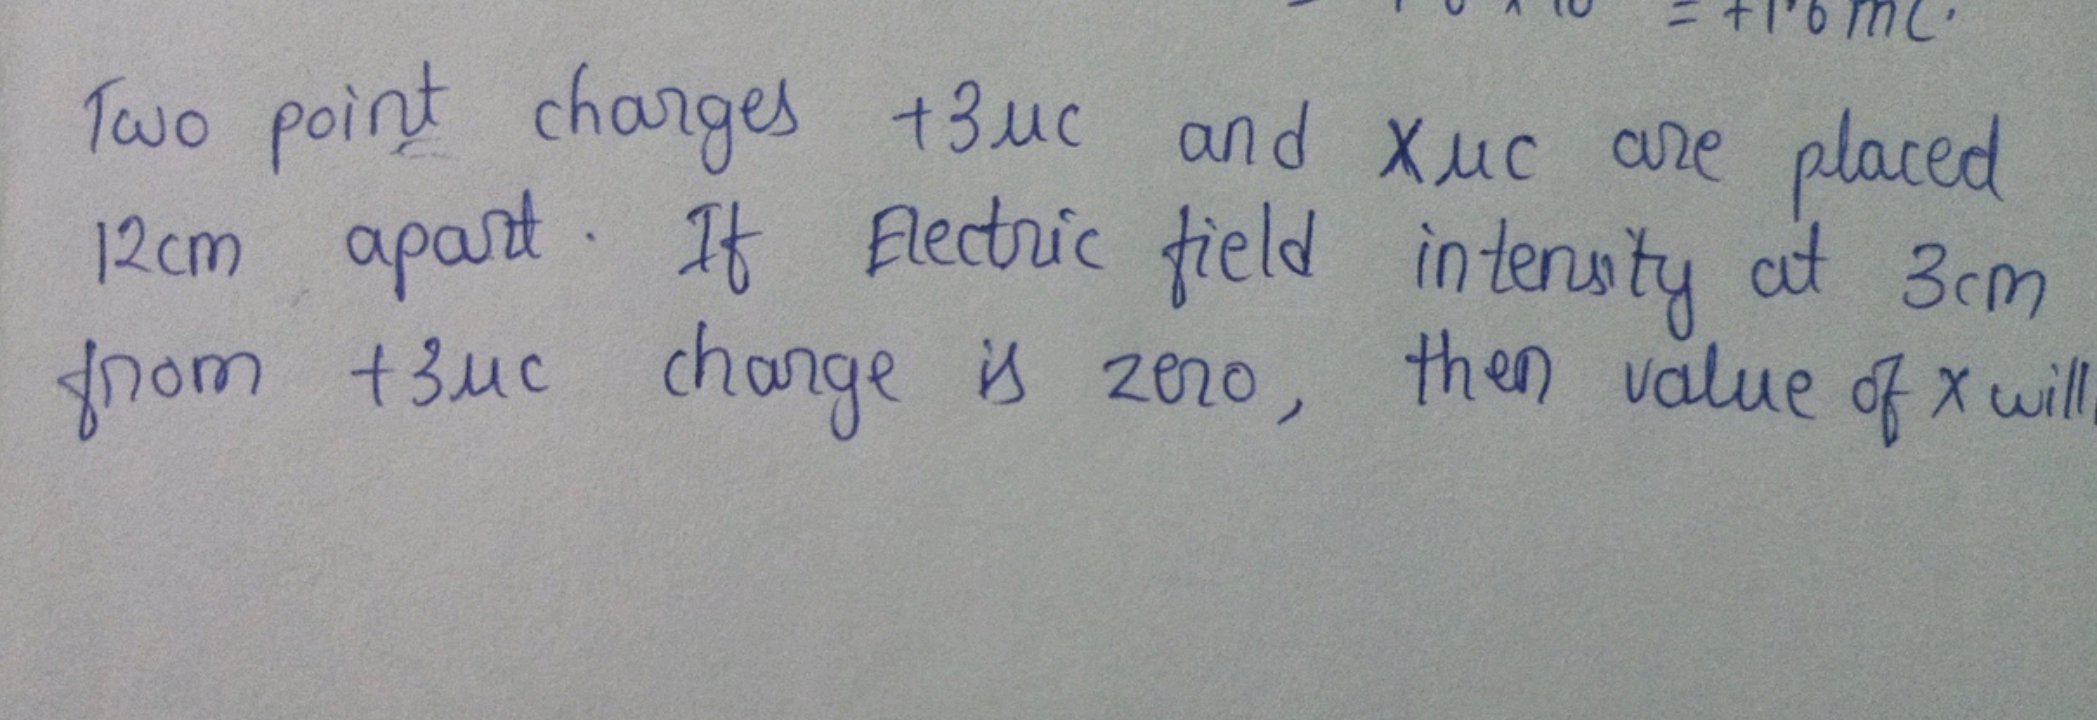 = +1.6 mC.
Two point charges +3μc and xμc are placed
12cm apart. If Electric field intensity at 3cm
from +3μc charge is zero, then value of x will